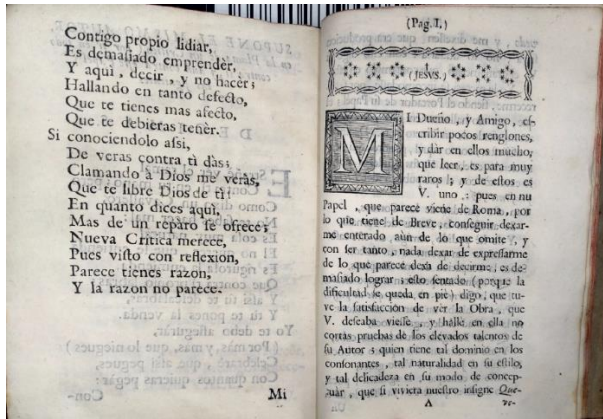 Contigo propio lidiar,
Es demasiado emprender,
Y aqui, decir, y no hacer;
Hallando en tanto defecto,
Que te tienes mas afecto,
Que te debieras tener.
Si conociendolo assi,
De veras contra ti das;
Clamando à Dios me veràs,
Que te libre Dios de ti:
En quanto dices aqui,
Mas de un reparo se ofrece;
Nueva Critica merece,
Pues visto con reflexion,
Parece tienes razon,
Y la razon no parece.
Mi
(Pag.I.)
(JESVS.)
MI Dueño, y Amigo, es-
cribir pocos renglones,
y dar en ellos mucho,
que leer, es para muy
raros; y de estos es
V. uno: pues en su
Papel, que parece viene de Roma, por
lo que tiene de Breve, conseguir dexar-
me enterado aun de lo que omite, y
con ser tanto, nada dexar de expressarme
de lo que parece dexa de decirme, es de-
masiado lograr; esto sentado (porque la
dificultad se queda en pie) digo, que tu-
ve la satisfaccion de ver la Obra, que
V. deseaba viesse, y hallè en ella no
cortas pruebas de los elevados talentos de
su Autor; quien tiene tal dominio en los
consonantes, tal naturalidad en su estilo,
y tal delicadeza en su modo de concep-
tuar, que si viviera nuestro insigne Que-
A